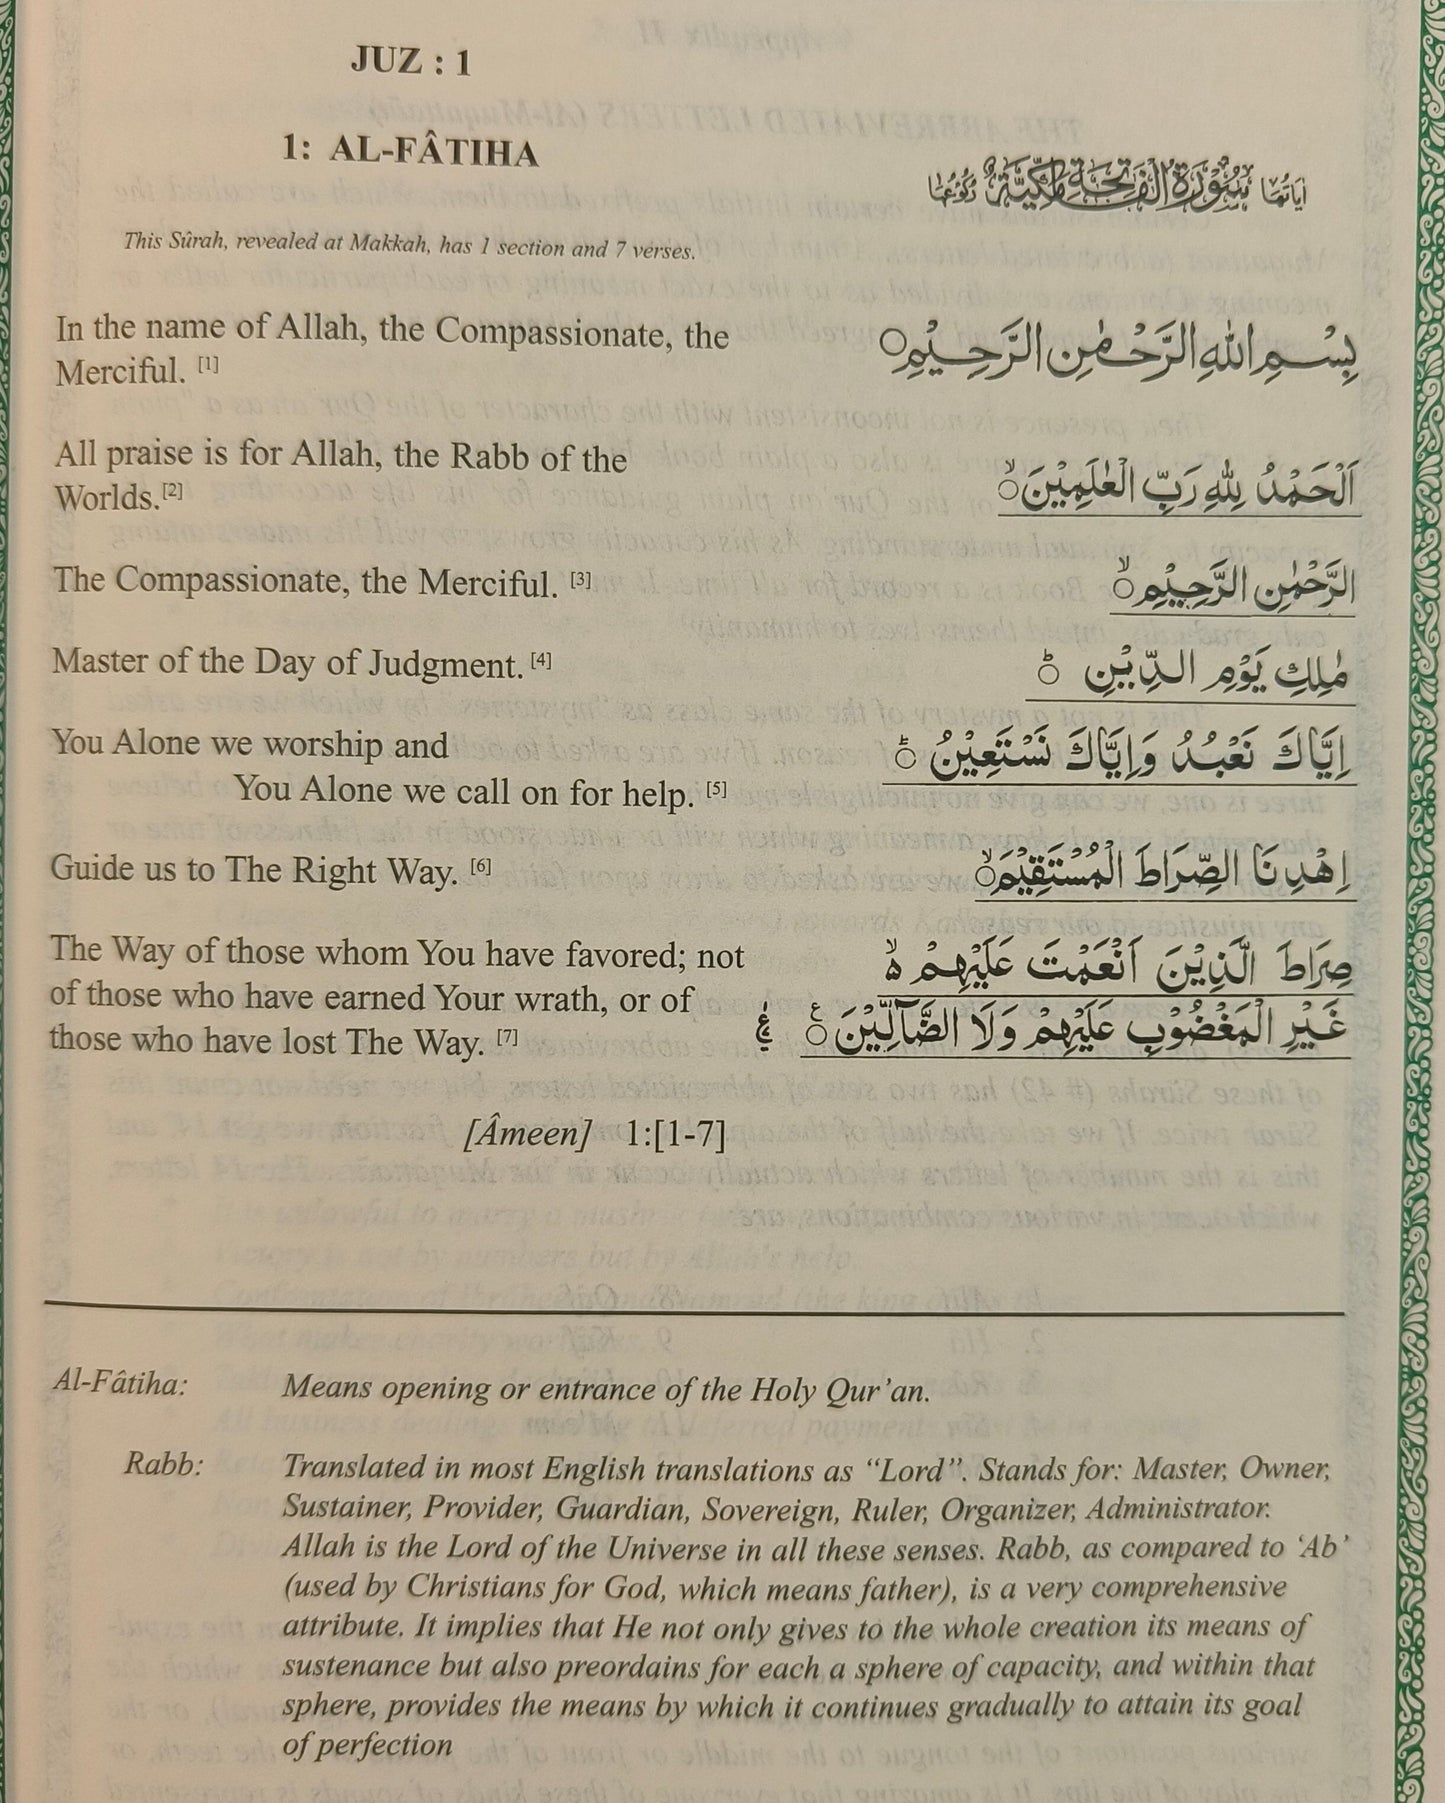 JUZ : 1
1: AL-FÂTIHA
سُوْرَةُ الْفَاتِحَةِ مَكِّيَّةٌ
This Sûrah, revealed at Makkah, has 1 section and 7 verses.
In the name of Allah, the Compassionate, the
Merciful. [1]
بِسْمِ اللّٰهِ الرَّحْمٰنِ الرَّحِيْمِ ○
All praise is for Allah, the Rabb of the
Worlds.[2]
اَلْحَمْدُ لِلّٰهِ رَبِّ الْعٰلَمِيْنَ ○ۙ
The Compassionate, the Merciful. [3]
الرَّحْمٰنِ الرَّحِيْمِ ○ۙ
Master of the Day of Judgment. [4]
مٰلِكِ يَوْمِ الدِّيْنِ ○ؕ
You Alone we worship and
You Alone we call on for help. [5]
اِيَّاكَ نَعْبُدُ وَاِيَّاكَ نَسْتَعِيْنُ ○ؕ
Guide us to The Right Way. [6]
اِهْدِنَا الصِّرَاطَ الْمُسْتَقِيْمَ ○ۙ
The Way of those whom You have favored; not
of those who have earned Your wrath, or of
those who have lost The Way. [7]
صِرَاطَ الَّذِيْنَ اَنْعَمْتَ عَلَيْهِمْ ۙ
غَيْرِ الْمَغْضُوْبِ عَلَيْهِمْ وَلَا الضَّآلِّيْنَ ○
[Âmeen] 1:[1-7]
Al-Fâtiha: Means opening or entrance of the Holy Qur'an.
Rabb: Translated in most English translations as “Lord”. Stands for: Master, Owner,
Sustainer, Provider, Guardian, Sovereign, Ruler, Organizer, Administrator.
Allah is the Lord of the Universe in all these senses. Rabb, as compared to ‘Ab’
(used by Christians for God, which means father), is a very comprehensive
attribute. It implies that He not only gives to the whole creation its means of
sustenance but also preordains for each a sphere of capacity, and within that
sphere, provides the means by which it continues gradually to attain its goal
of perfection